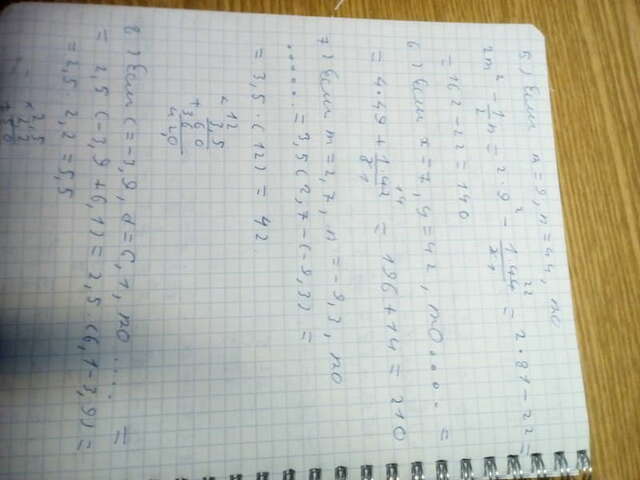 5) Если m=9, n=44, то
2m² - 1/2 n = 2·9² - 1·44/2 = 2·81-22=
=162-22=140
6) Если x=7, y=42, то..... =
=4·49+ 1·42/3 = 196+14=210
7) Если m=2,7, n=-9,3, то
..... =3,5(2,7-(-9,3)) =
=3,5·(12)=42
12
× 3,5
60
+ 36
42,0
8) Если c=-3,9, d=6,1, то ..... =
=2,5(-3,9+6,1)=2,5·(6,1-3,9)=
=2,5·2,2=5,5
2,5
× 2,2